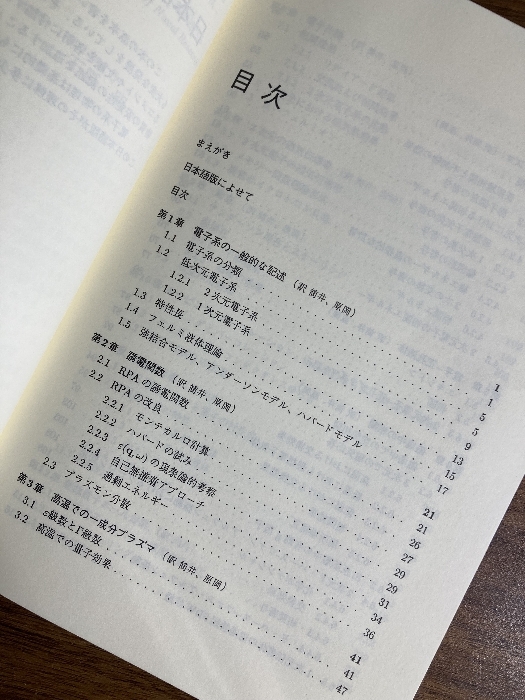 目次
まえがき
日本語版によせて
目次
第1章 電子系の一般的な記述 (訳 筒井、原岡) 1
1.1 電子系の分類 . . . 1
1.2 低次元電子系 . . . 5
1.2.1 2次元電子系 . . . 5
1.2.2 1次元電子系 . . . 9
1.3 特性長 . . . 13
1.4 フェルミ液体理論 . . . 15
1.5 強結合モデル、アンダーソンモデル、ハバードモデル . . . 17
第2章 誘電関数 (訳 筒井、原岡) 21
2.1 RPAの誘電関数 . . . 21
2.2 RPAの改良 . . . 26
2.2.1 モンテカルロ計算 . . . 27
2.2.2 ハバードの試み . . . 29
2.2.3 ε(q,ω)の現象論的考察 . . . 29
2.2.4 自己無撞着アプローチ . . . 31
2.2.5 エネルギー . . . 34
2.3 プラズモン分散 . . . 36
第3章 高温での一成分プラズマ (訳 筒井、原岡) 41
3.1 ε級数とΓ級数 . . . 41
3.2 高温での量子効果 . . . 47